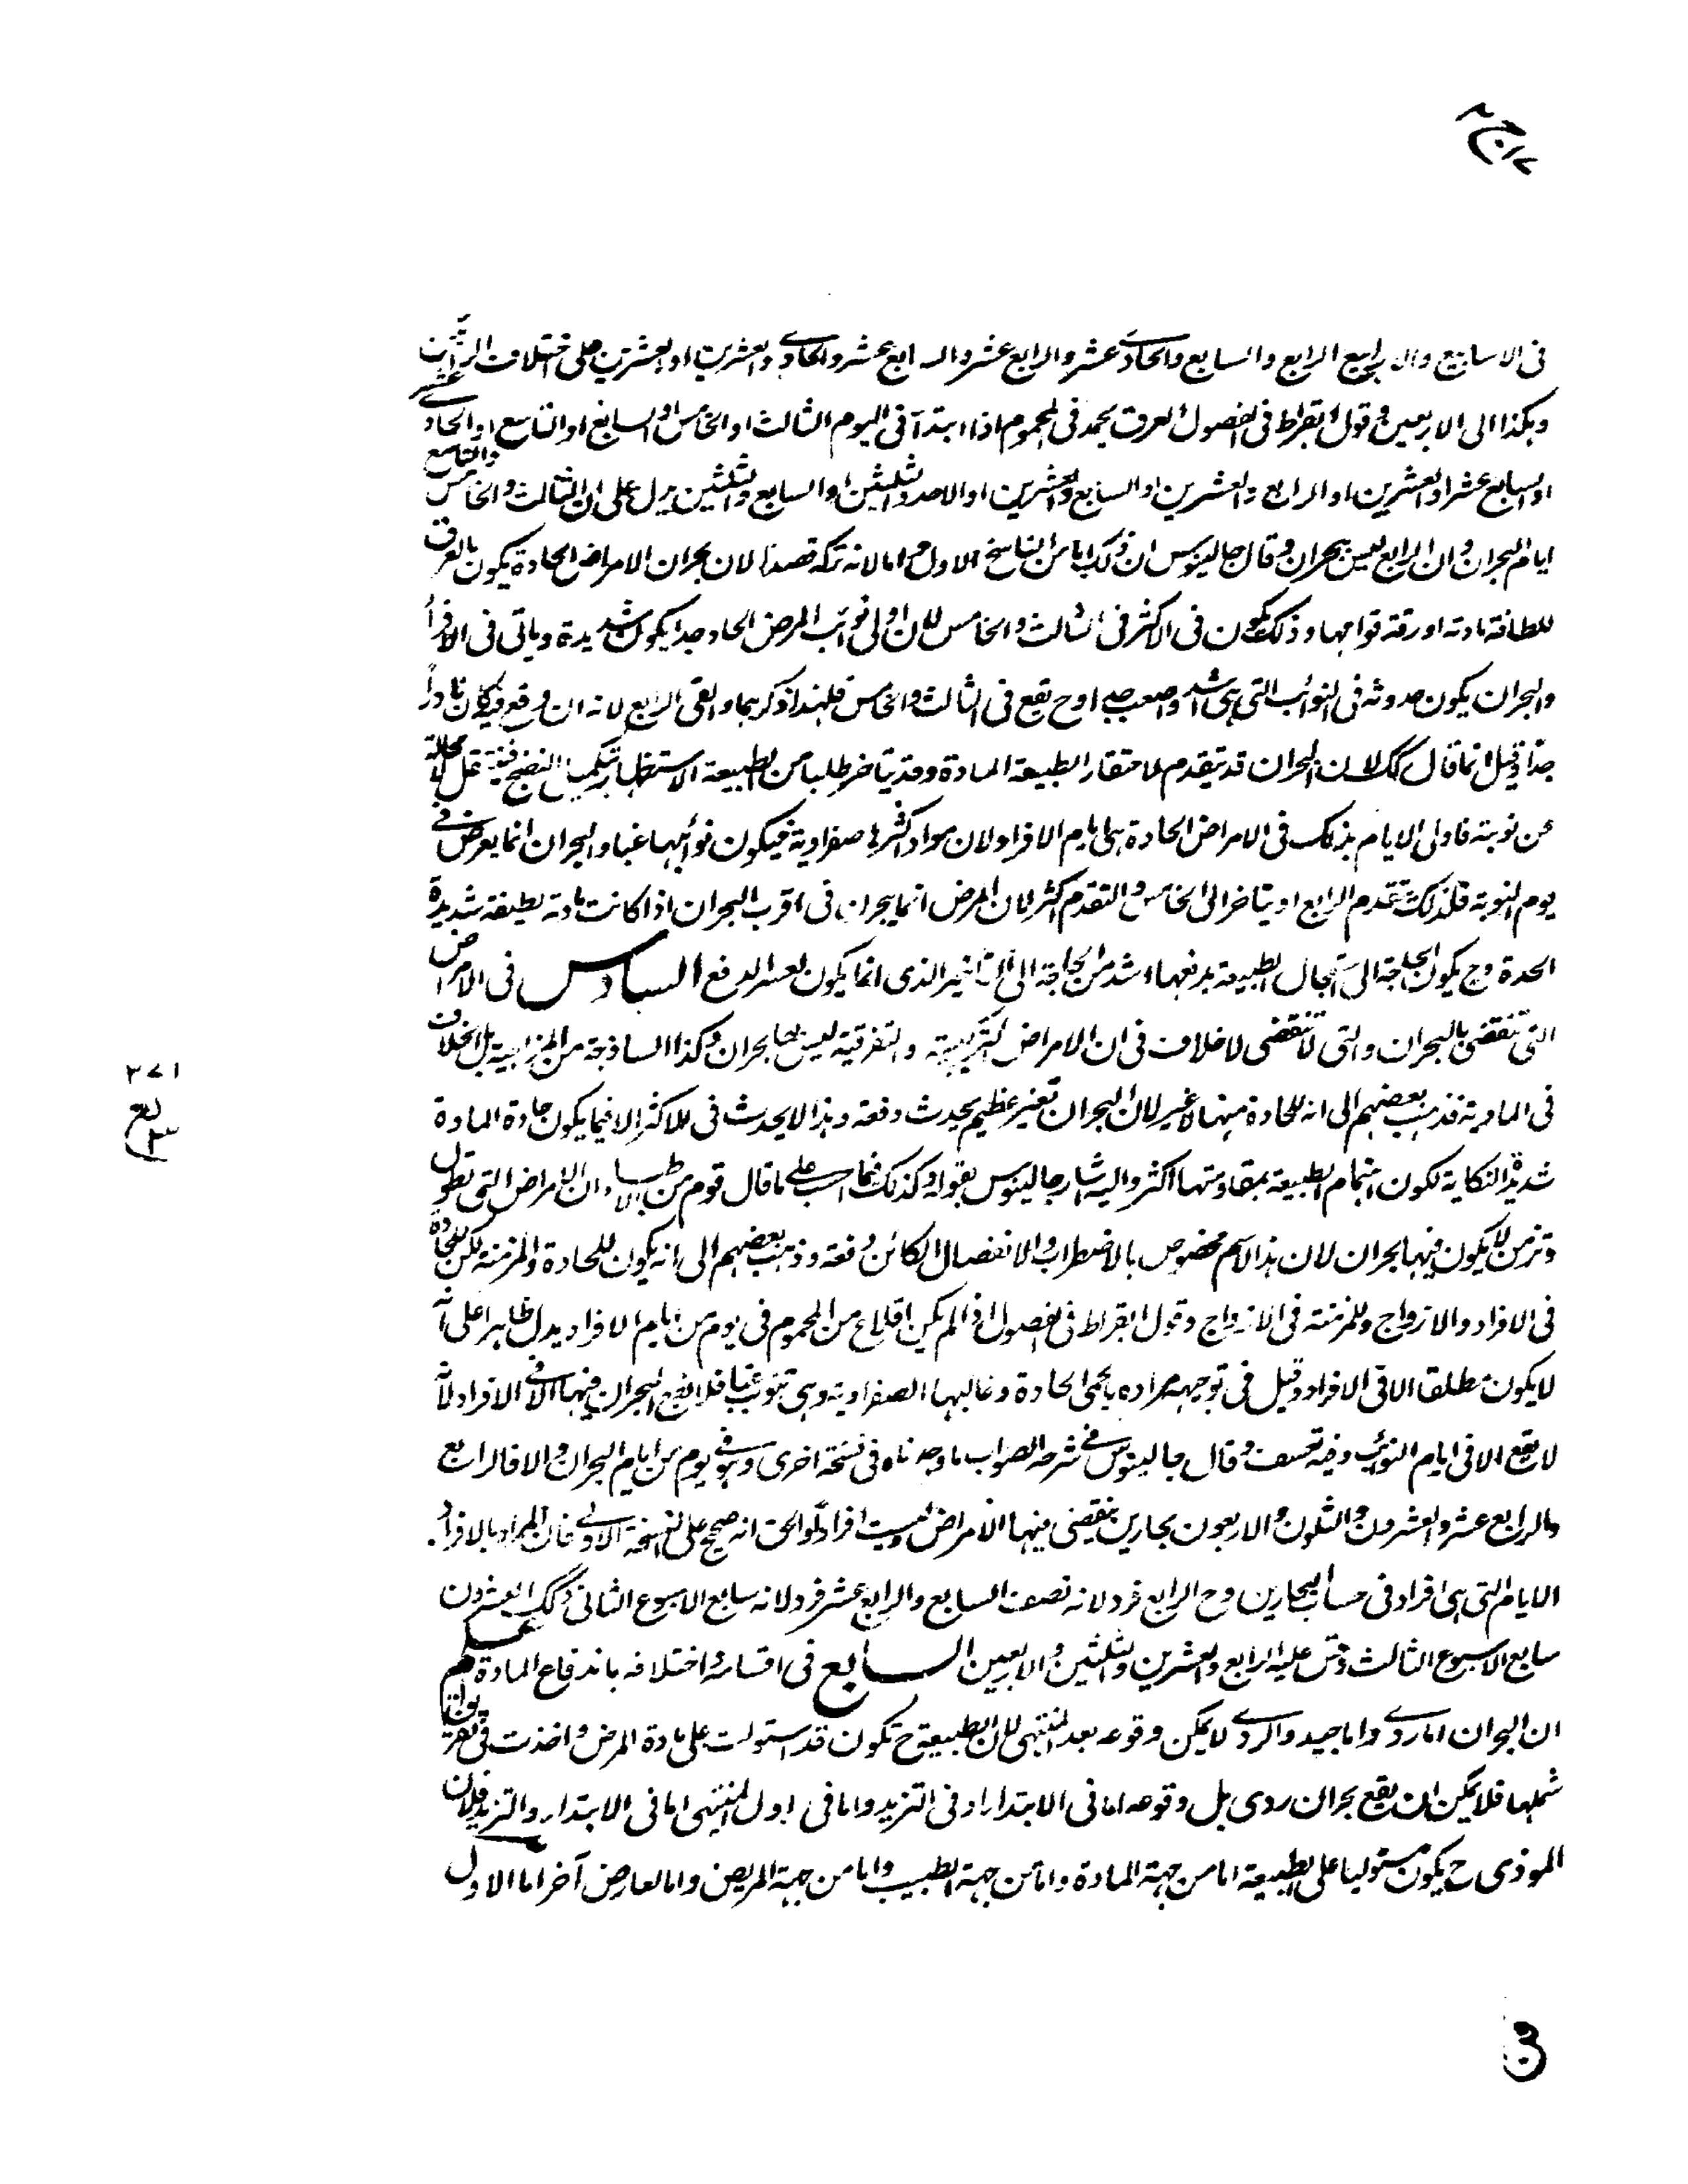 فى الاسابيع والرابيع الرابع والسابع والحادى عشر والرابع عشر والسابع عشر والحادى والعشرين او العشرين على اختلاف الرأيين
وهكذا الى الاربعين وقول ابقراط فى الفصول العرق يحمد فى المحموم اذا ابتدأ فى اليوم الثالث او الخامس او السابع او التاسع او الحادى عشر
او السابع عشر او العشرين او الرابع والعشرين او السابع والعشرين او الاحد والثلثين او السابع والثلثين يدل على ان الثالث والخامس والتاسع
ايام البحران وان الرابع ليس ببحران وقال جالينوس ان ذلك اما من الناسخ الاول واما لانه تركه قصدا لان بحران الامراض الحادة يكون بالعرق
للطافة مادته او رقة قوامها وذلك يكون فى الاكثر فى الثالث والخامس لان اولى نوائب المرض الحاد جدا يكون شديدة وياتى فى الافراد
والبحران يكون حدوثه فى النوائب التى هى اشد واصعب وح يقع فى الثالث والخامس فلهذا ذكرهما والقى الرابع لانه ان وقع فيه كان نادرا
جدا وقيل انما قال كك لان البحران قد يتقدم لاحتقار الطبيعة المادة وقد يتاخر طلبا من الطبيعة لاستعمال تكميل النضج
عن نوبة فاولى الايام بذلك فى الامراض الحادة هى ايام الافراد لان مواد اكثرها صفراوية فيكون نوائبها غبا والبحران انما يعرض فى
يوم النوبة فلذلك يتقدم الرابع او يتاخر الى الخامس والتقدم اكثر لان المرض انما يبحرن فى اقرب البحران اذا كانت مادته لطيفة شديدة
الحدة وح يكون الحاجة الى استعجال الطبيعة بدفعها اشد من الحاجة الى التاخير الذى انما يكون لعسر الدفع السادس فى الامراض
التى تنقضى بالبحران والتى لا تنقضى لا خلاف فى ان الامراض التركيبية والتفرقية ليس لها بحران وكذا الساذجة من المزاجية بل الخلاف
فى المادية فذهب بعضهم الى انه للحادة منها لا غير لان البحران تغير عظيم يحدث دفعة وهذا لا يحدث فى الاكثر الا فيما يكون حادة المادة
شديدة النكاية لكون اهتمام الطبيعة بمقاومتها اكثر واليه اشار جالينوس بقوله وكذلك فما احسب على ما قال قوم من الاطباء ان الامراض التى تطول
وتزمن لا يكون فيها بحران لان هذا الاسم مخصوص بالاضطراب والانفصال الكائن دفعة وذهب بعضهم الى انه يكون للحادة والمزمنة لكن للحادة
فى الافراد والازواج وللمزمنة فى الازواج وقول ابقراط فى الفصول اذا لم يكن اقلاع من المحموم فى يوم من ايام الافراد يدل ظاهرا على انه
لا يكون مطلقا الا فى الافراد وقيل فى توجيهه مراده بالحمى الحادة وغالبها الصفراوية وهى تنوب غبا فلا يقع البحران فيها الا فى الافراد لانه
لا يقع الا فى ايام النوائب وفيه تعسف وقال جالينوس فى شرحه الصواب ما وجدناه فى نسخة اخرى وهو فى يوم من ايام البحران والا فالرابع
والرابع عشر والعشرون والثلثون والاربعون بحارين ينقضى فيها الامراض وليست افرادا والحق انه صحيح على النسخة الاولى فان المراد بالافراد
الايام التى هى افراد فى حساب البحارين وح الرابع فرد لانه نصف السابع والرابع عشر فرد لانه سابع الاسبوع الثانى وكك العشرون
سابع الاسبوع الثالث وقس عليه الرابع والعشرين والثلثين والاربعين السابع فى اقسامه واختلافه باندفاع المادة اعلم
ان البحران اما ردى واما جيد والردى لا يمكن وقوعه بعد المنتهى لان الطبيعة ح تكون قد استولت على مادة المرض واخذت فى تفريق
شملها فلا يمكن ان يقع بحران ردى بل وقوعه اما فى الابتداء او فى التزيد واما فى اول المنتهى اما فى الابتداء والتزيد فلان
الموذى ح يكون مستوليا على الطبيعة اما من جهة المادة واما من جهة الطبيب واما من جهة المريض واما لعارض آخر اما الاول
٣٧١